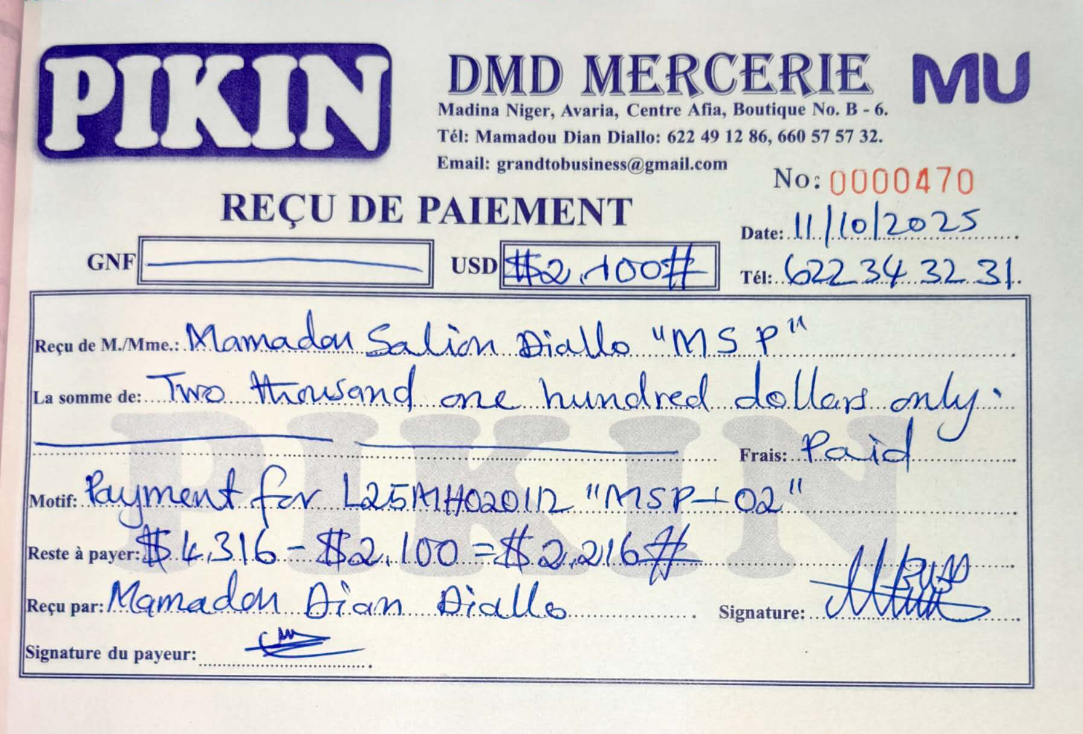 PIKIN
DMD MERCERIE MU
Madina Niger, Avaria, Centre Afia, Boutique No. B - 6.
Tél: Mamadou Dian Diallo: 622 49 12 86, 660 57 57 32.
Email: grandtobusiness@gmail.com
No: 0000470
REÇU DE PAIEMENT
Date: 11/10/2025
GNF USD $2.100#
Tél: 622 34 32 31
Reçu de M./Mme.: Mamadou Saliou Diallo "MSP"
La somme de: Two thousand one hundred dollars only.
Frais: Paid
Motif: Payment for L25MH020112 "MSP-02"
Reste à payer: $4.316 - $2.100 = $2.216#
Reçu par: Mamadou Dian Diallo Signature:
Signature du payeur:
PIKIN